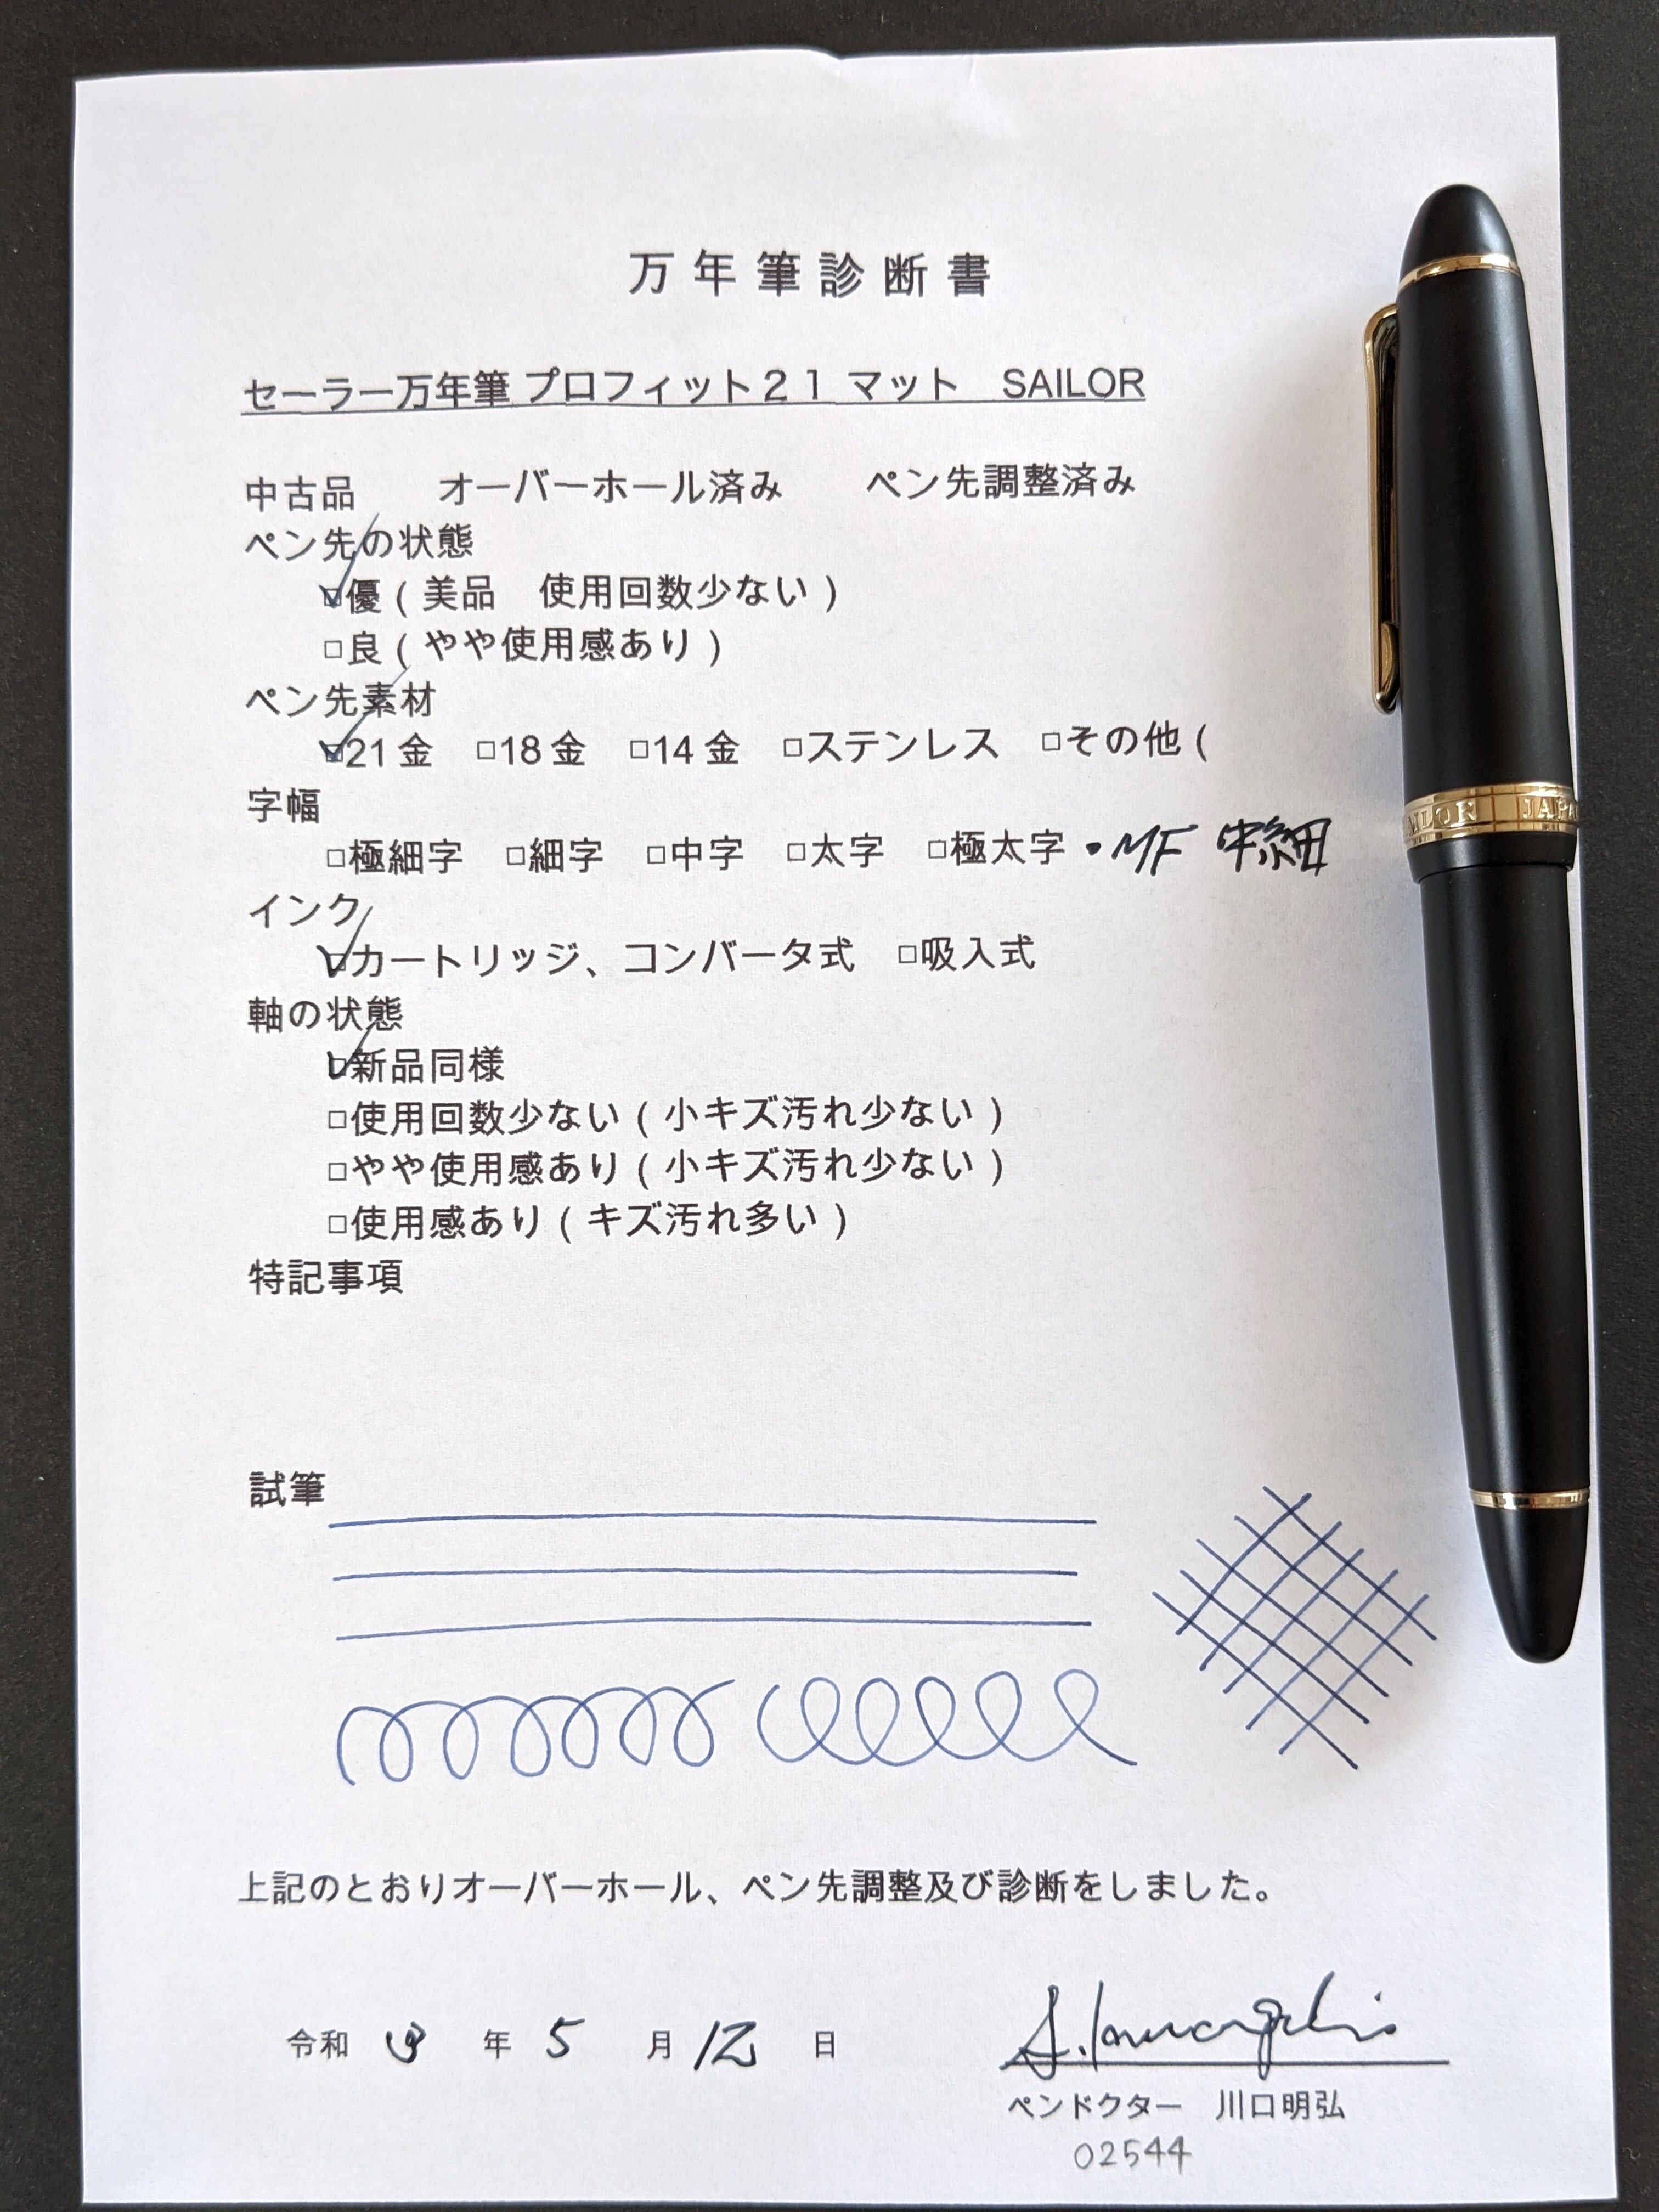 万年筆診断書
セーラー万年筆 プロフィット21 マット SAILOR
中古品 オーバーホール済み ペン先調整済み
ペン先の状態
☑優(美品 使用回数少ない)
□良(やや使用感あり)
ペン先素材
☑21金 □18金 □14金 □ステンレス □その他(
字幅
□極細字 □細字 □中字 □太字 □極太字 ・MF 中細
インク
☑カートリッジ、コンバータ式 □吸入式
軸の状態
☑新品同様
□使用回数少ない(小キズ汚れ少ない)
□やや使用感あり(小キズ汚れ少ない)
□使用感あり(キズ汚れ多い)
特記事項
試筆
上記のとおりオーバーホール、ペン先調整及び診断をしました。
令和 3 年 5 月 12 日
ペンドクター 川口明弘
02544
AILOR JAPA